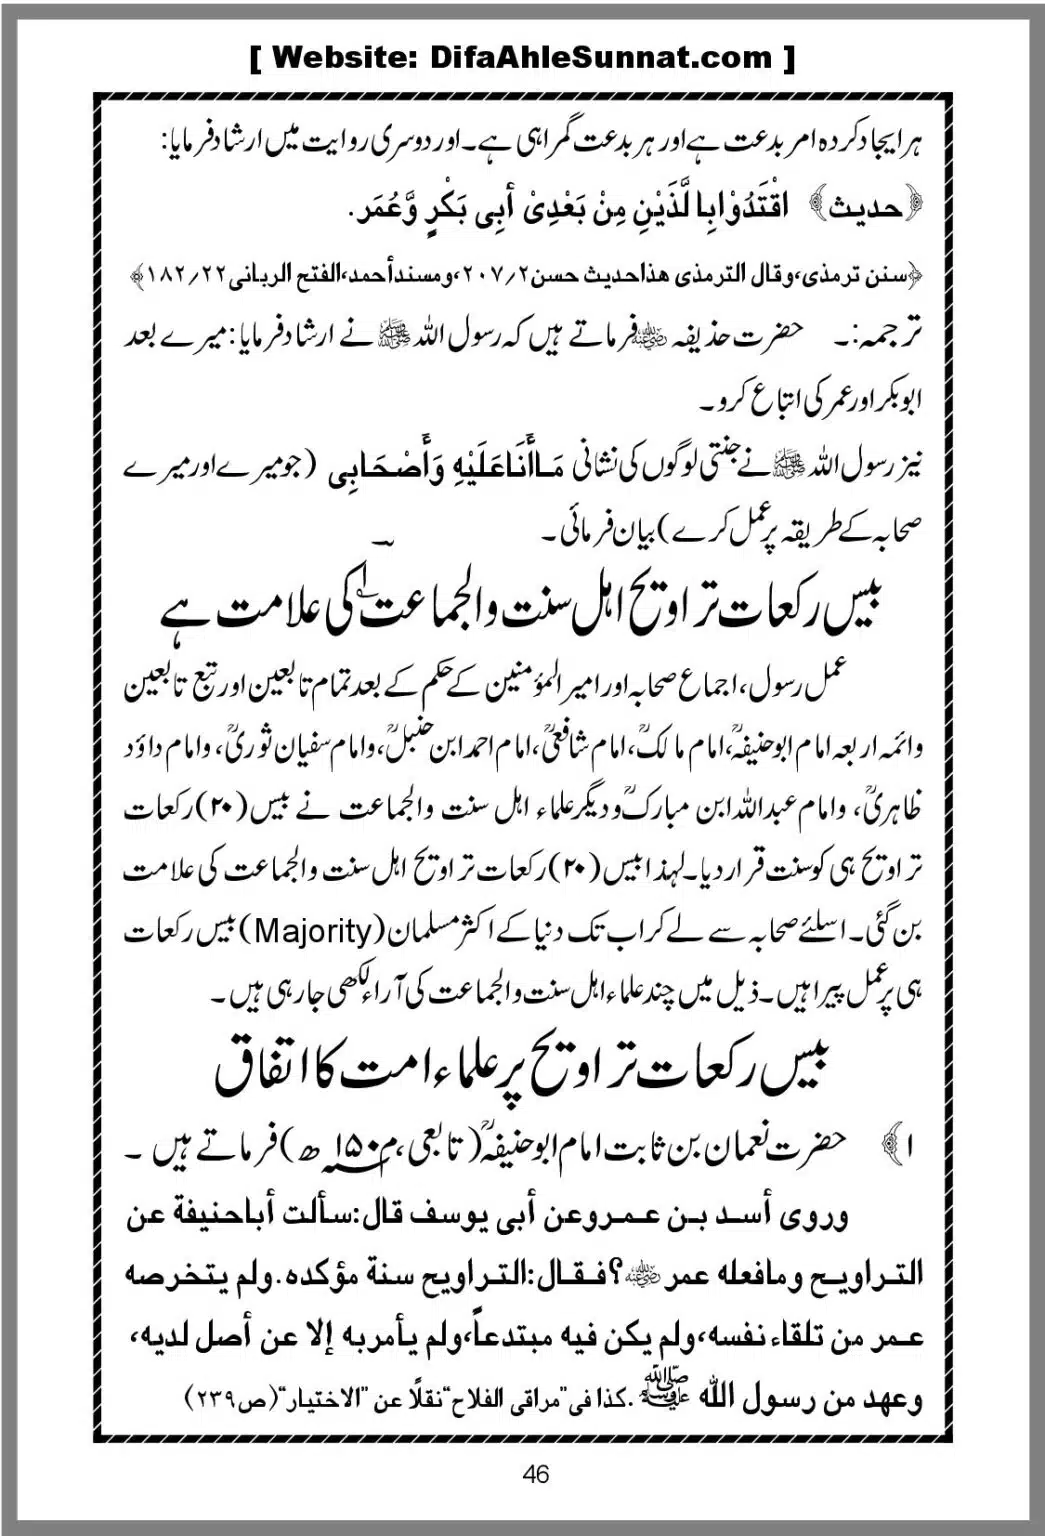 [ Website: DifaAhleSunnat.com ]
ہر ایجاد کردہ امر بدعت ہے اور ہر بدعت گمراہی ہے۔ اور دوسری روایت میں ارشاد فرمایا:
﴿حدیث﴾ اقْتَدُوْا بِا لَّذَيْنِ مِنْ بَعْدِىْ أبِى بَكْرٍ وَّعُمَر.
﴿سنن ترمذی،وقال الترمذی هذاحدیث حسن۲؍۲۰۷،ومسندأحمد،الفتح الربانی۲۲؍۱۸۲﴾
ترجمہ:۔ حضرت حذیفہ رضی اللہ عنہ فرماتے ہیں کہ رسول اللہ ﷺ نے ارشاد فرمایا: میرے بعد
ابوبکر اور عمر کی اتباع کرو۔
نیز رسول اللہ ﷺ نے جنتی لوگوں کی نشانی مَاأَنَاعَلَيْهِ وَأَصْحَابِى (جو میرے اور میرے
صحابہ کے طریقہ پر عمل کرے) بیان فرمائی۔
بیس رکعات تراویح اہل سنت والجماعت کی علامت ہے
عمل رسول، اجماع صحابہ اور امیر المؤمنین کے حکم کے بعد تمام تابعین اور تبع تابعین
وائمہ اربعہ امام ابوحنیفہؒ، امام مالکؒ، امام شافعیؒ، امام احمد ابن حنبلؒ، وامام سفیان ثوریؒ، وامام داؤد
ظاہریؒ، وامام عبداللہ ابن مبارکؒ ودیگر علماء اہل سنت والجماعت نے بیس (۲۰) رکعات
تراویح ہی کو سنت قرار دیا۔ لہٰذا بیس (۲۰) رکعات تراویح اہل سنت والجماعت کی علامت
بن گئی۔ اسلئے صحابہ سے لے کر اب تک دنیا کے اکثر مسلمان (Majority) بیس رکعات
ہی پر عمل پیرا ہیں۔ ذیل میں چند علماء اہل سنت والجماعت کی آراء لکھی جارہی ہیں۔
بیس رکعات تراویح پر علماء امت کا اتفاق
۱﴾ حضرت نعمان بن ثابت امام ابوحنیفہؒ (تابعی، م ۱۵۰ ھ) فرماتے ہیں۔
وروى أسد بن عمروعن أبى يوسف قال:سألت أباحنيفة عن
التراويح ومافعله عمر رضی اللہ عنہ؟فقال:التراويح سنة مؤكده.ولم يتخرصه
عمر من تلقاء نفسه،ولم يكن فيه مبتدعاً،ولم يأمربه إلا عن أصل لديه،
وعهد من رسول الله ﷺ .كذا فى"مراقى الفلاح"نقلًا عن "الاختيار"(ص۲۳۹)
46